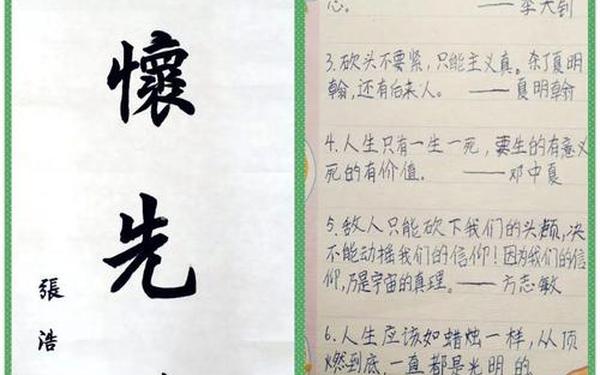 懷
先
張
浩
志。 ——李大钊
3.砍头不要紧,只能主义真。杀了夏明
翰,还有后来人。 ——夏明翰
4.人生只有一生一死,要生的有意义
死的有价值。 ——邓中夏
5.敌人只能砍下我们的头颅,决
不能动摇我们的信仰!因为我们的信
仰,乃是宇宙的真理。——方志敏
6.人生应该如蜡烛一样,从顶
燃到底,一直都是光明的